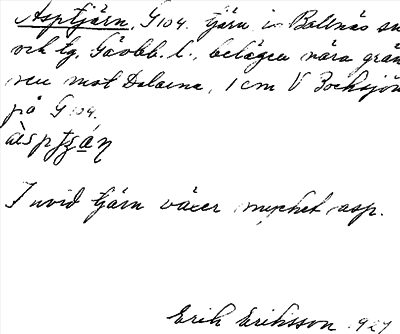 Asptjärn. G 104. tjärn i Bollnäs sn
och tg. Gävlb. l., belägen nära grän
sen mot Dalarna, 1 cm V Bocksjön
på G 104.
I invid tjärn växer mycket asp.
Erik Eriksson 1927